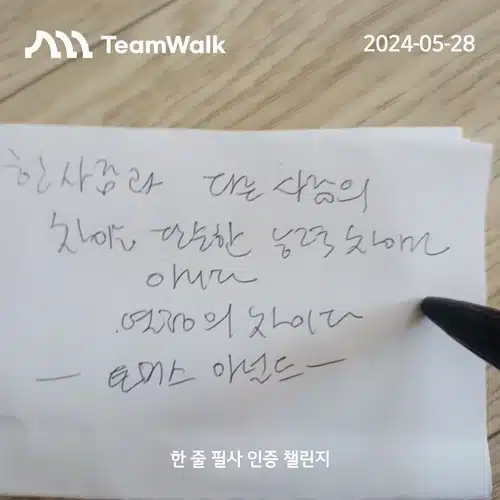 TeamWalk
2024-05-28
한 사람과 다른 사람의
차이는 단순한 능력 차이만
아니다
열정의 차이다
- 토머스 아널드 -
한 줄 필사 인증 챌린지